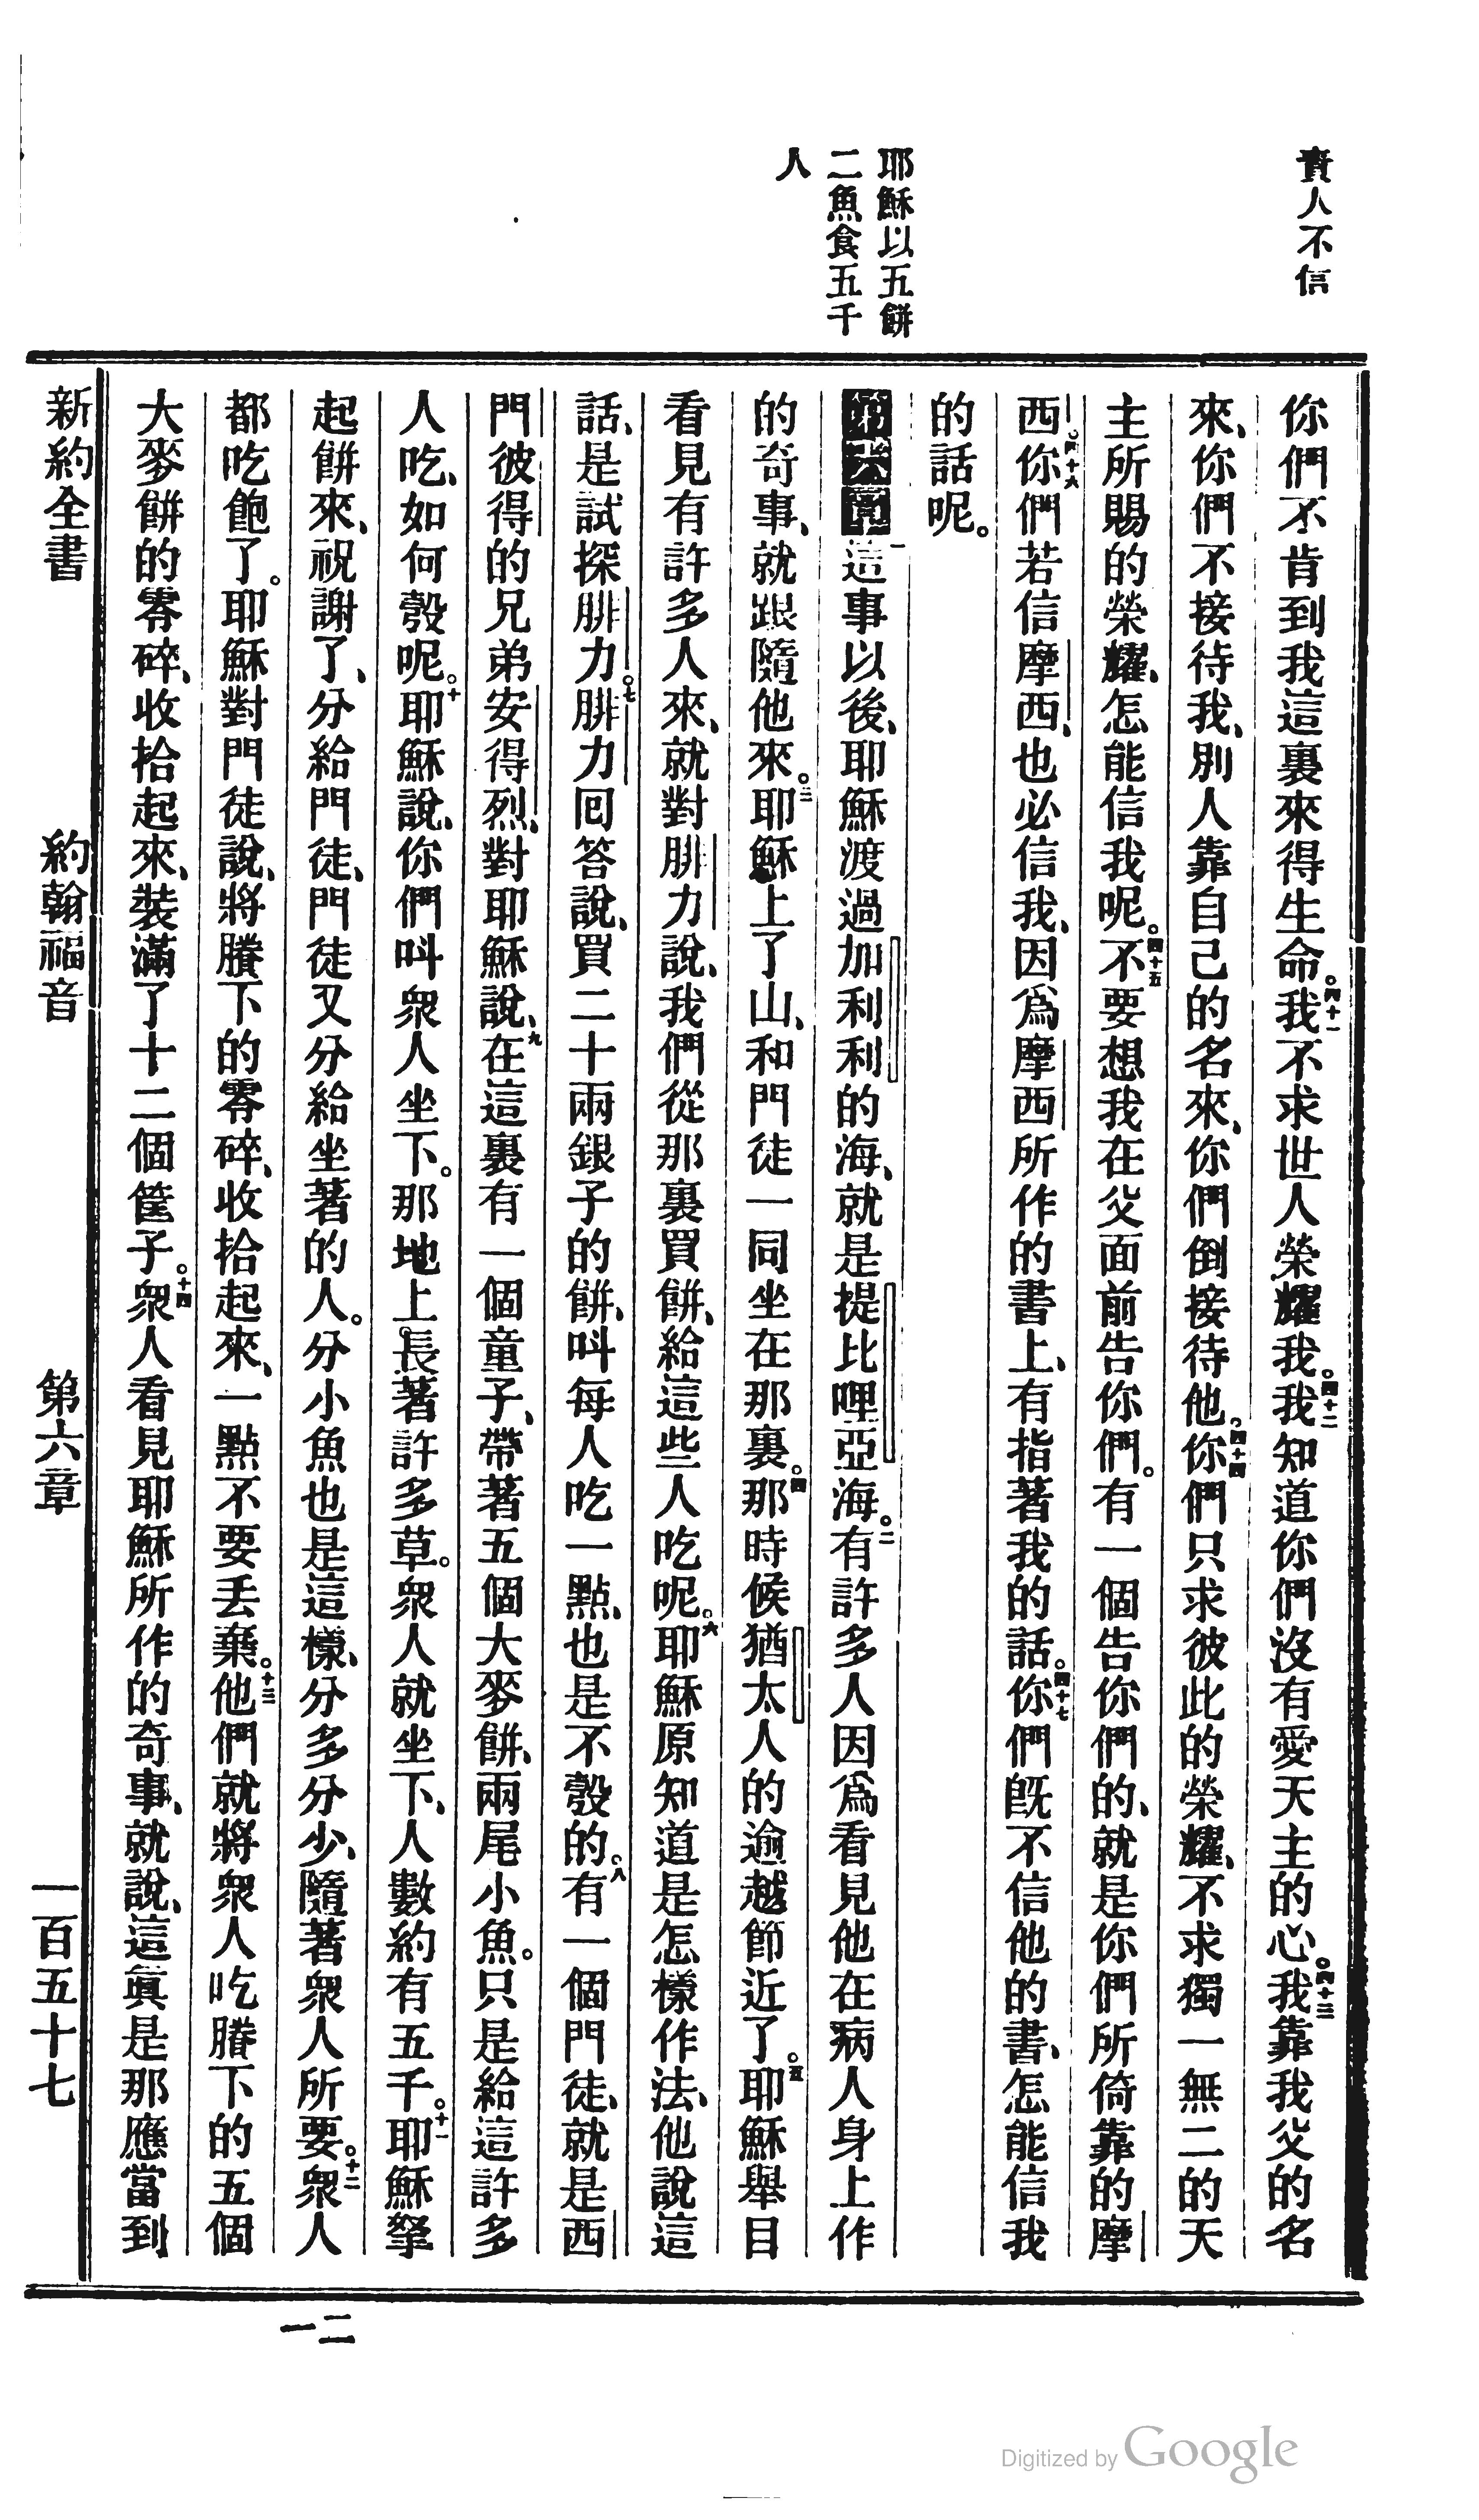 責人不信
耶穌以五餅
二魚食五千
人
你們不肯到我這裏來得生命。四十一我不求世人榮耀我。四十二我知道你們沒有愛天主的心。四十三我靠我父的名
來、你們不接待我、別人靠自己的名來、你們倒接待他。四十四你們只求彼此的榮耀、不求獨一無二的天
主所賜的榮耀、怎能信我呢。四十五不要想我在父面前告你們。有一個告你們的、就是你們所倚靠的摩
西。四十六你們若信摩西、也必信我、因爲摩西所作的書上、有指著我的話。四十七你們旣不信他的書、怎能信我
的話呢。
第六章一這事以後、耶穌渡過加利利的海、就是提比哩亞海。二有許多人因爲看見他在病人身上作
的奇事、就跟隨他來。三耶穌上了山、和門徒一同坐在那裏。四那時候猶太人的逾越節近了。五耶穌舉目
看見有許多人來、就對腓力說、我們從那裏買餅、給這些人吃呢。六耶穌原知道是怎樣作法、他說這
話、是試探腓力。七腓力回答說、買二十兩銀子的餅、叫每人吃一點、也是不彀的。八有一個門徒、就是西
門彼得的兄弟安得烈、對耶穌說、九在這裏有一個童子、帶著五個大麥餅、兩尾小魚。只是給這許多
人吃、如何彀呢。十耶穌說、你們叫衆人坐下。那地上長著許多草。衆人就坐下、人數約有五千。十一耶穌拏
起餅來、祝謝了、分給門徒、門徒又分給坐著的人。分小魚也是這樣、分多分少、隨著衆人所要。十二衆人
都吃飽了。耶穌對門徒說、將賸下的零碎、收拾起來、一點不要丟棄。十三他們就將衆人吃賸下的五個
大麥餅的零碎、收拾起來、裝滿了十二個筐子。十四衆人看見耶穌所作的奇事、就說、這眞是那應當到
新約全書 約翰福音 第六章 一百五十七
二一
Digitized by Google